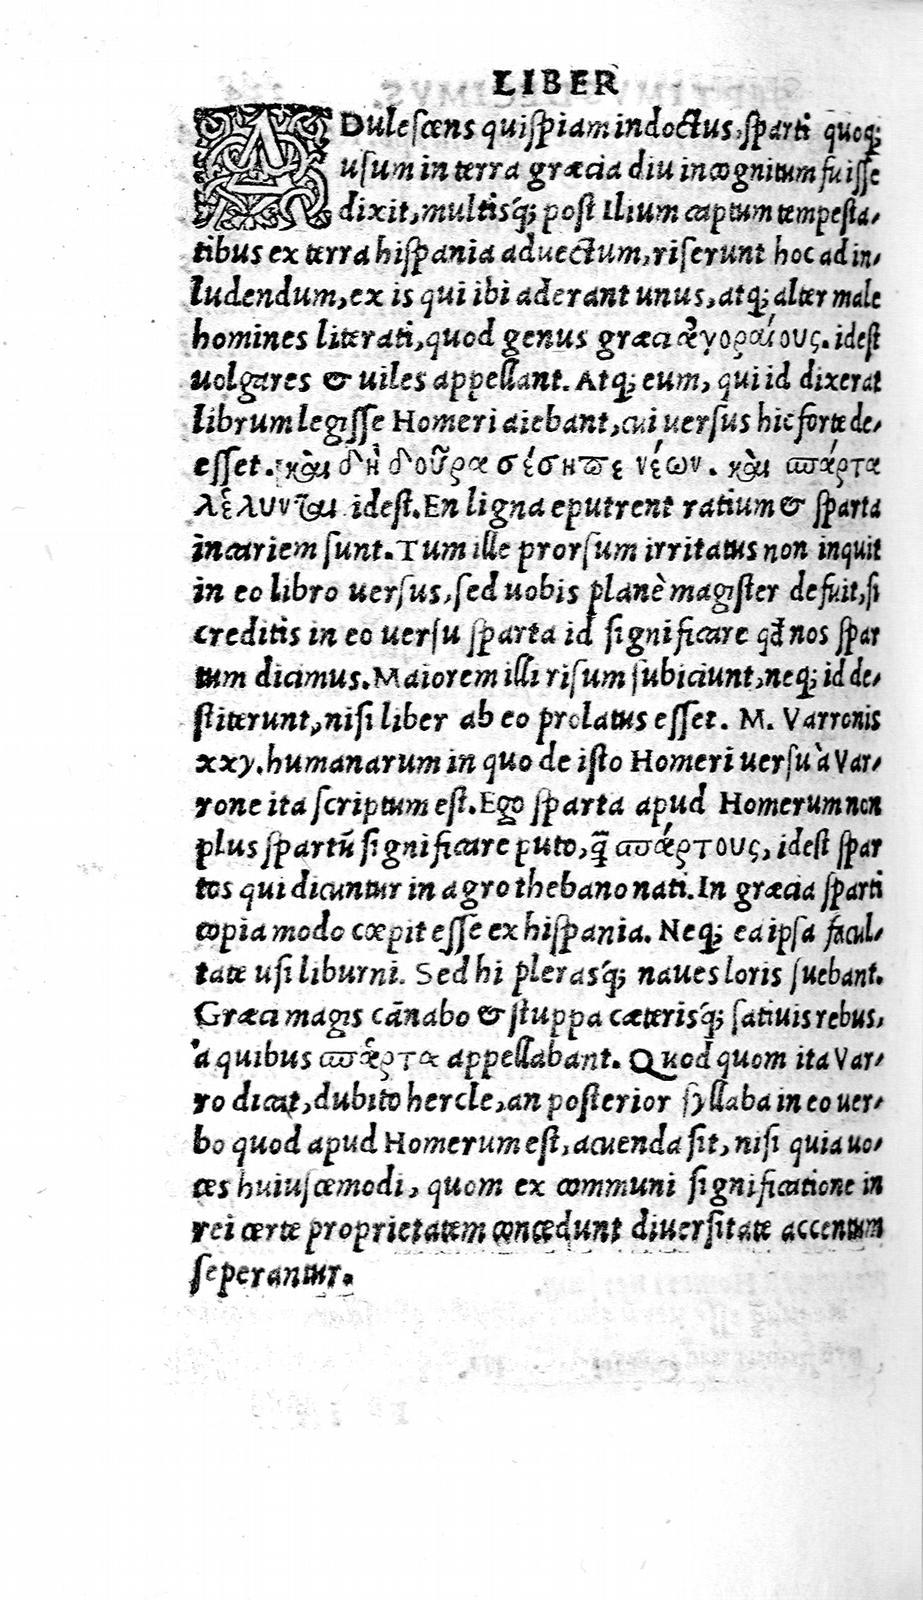 LIBER
ADulescens quispiam indoctus, sparti quoq;
usum in terra græcia diu incognitum fuisse
dixit, multisq́; post Ilium captum tempesta,
tibus ex terra hispania aduectum, riserunt hoc ad in,
ludendum, ex is qui ibi aderant unus, atq; alter male
homines literati, quod genus græci ἀγοραίους. idest
uolgares & uiles appellant. Atq; eum, qui id dixerat
librum legisse Homeri aiebant, cui uersus hic forte de,
esset. καὶ δὴ δοῦρα σέσηπε νέων. καὶ σπάρτα
λέλυνται idest. En ligna eputrent ratium & sparta
in cariem sunt. Tum ille prorsum irritatus non inquit
in eo libro uersus, sed uobis planè magister defuit, si
creditis in eo uersu sparta id significare qđ nos spar
tum dicimus. Maiorem illi risum subiciunt, neq; id de,
stiterunt, nisi liber ab eo prolatus esset. M. Varronis
xxy. humanarum in quo de isto Homeri uersu à Var,
rone ita scriptum est. Ego sparta apud Homerum non
plus spartū significare puto, q̄ σπάρτους, idest spar
tos qui dicuntur in agro thebano nati. In græcia sparti
copia modo cœpit esse ex hispania. Neq; ea ipsa facul,
tate usi liburni. Sed hi plerasq́; naues loris suebant.
Græci magis cānabo & stuppa cæterisq́; satiuis rebus,
à quibus σπάρτα appellabant. Quod quom ita Var,
ro dicat, dubito hercle, an posterior syllaba in eo uer,
bo quod apud Homerum est, acuenda sit, nisi quia uo,
ces huiuscemodi, quom ex communi significatione in
rei certe proprietatem concedunt diuersitate accentum
seperantur.